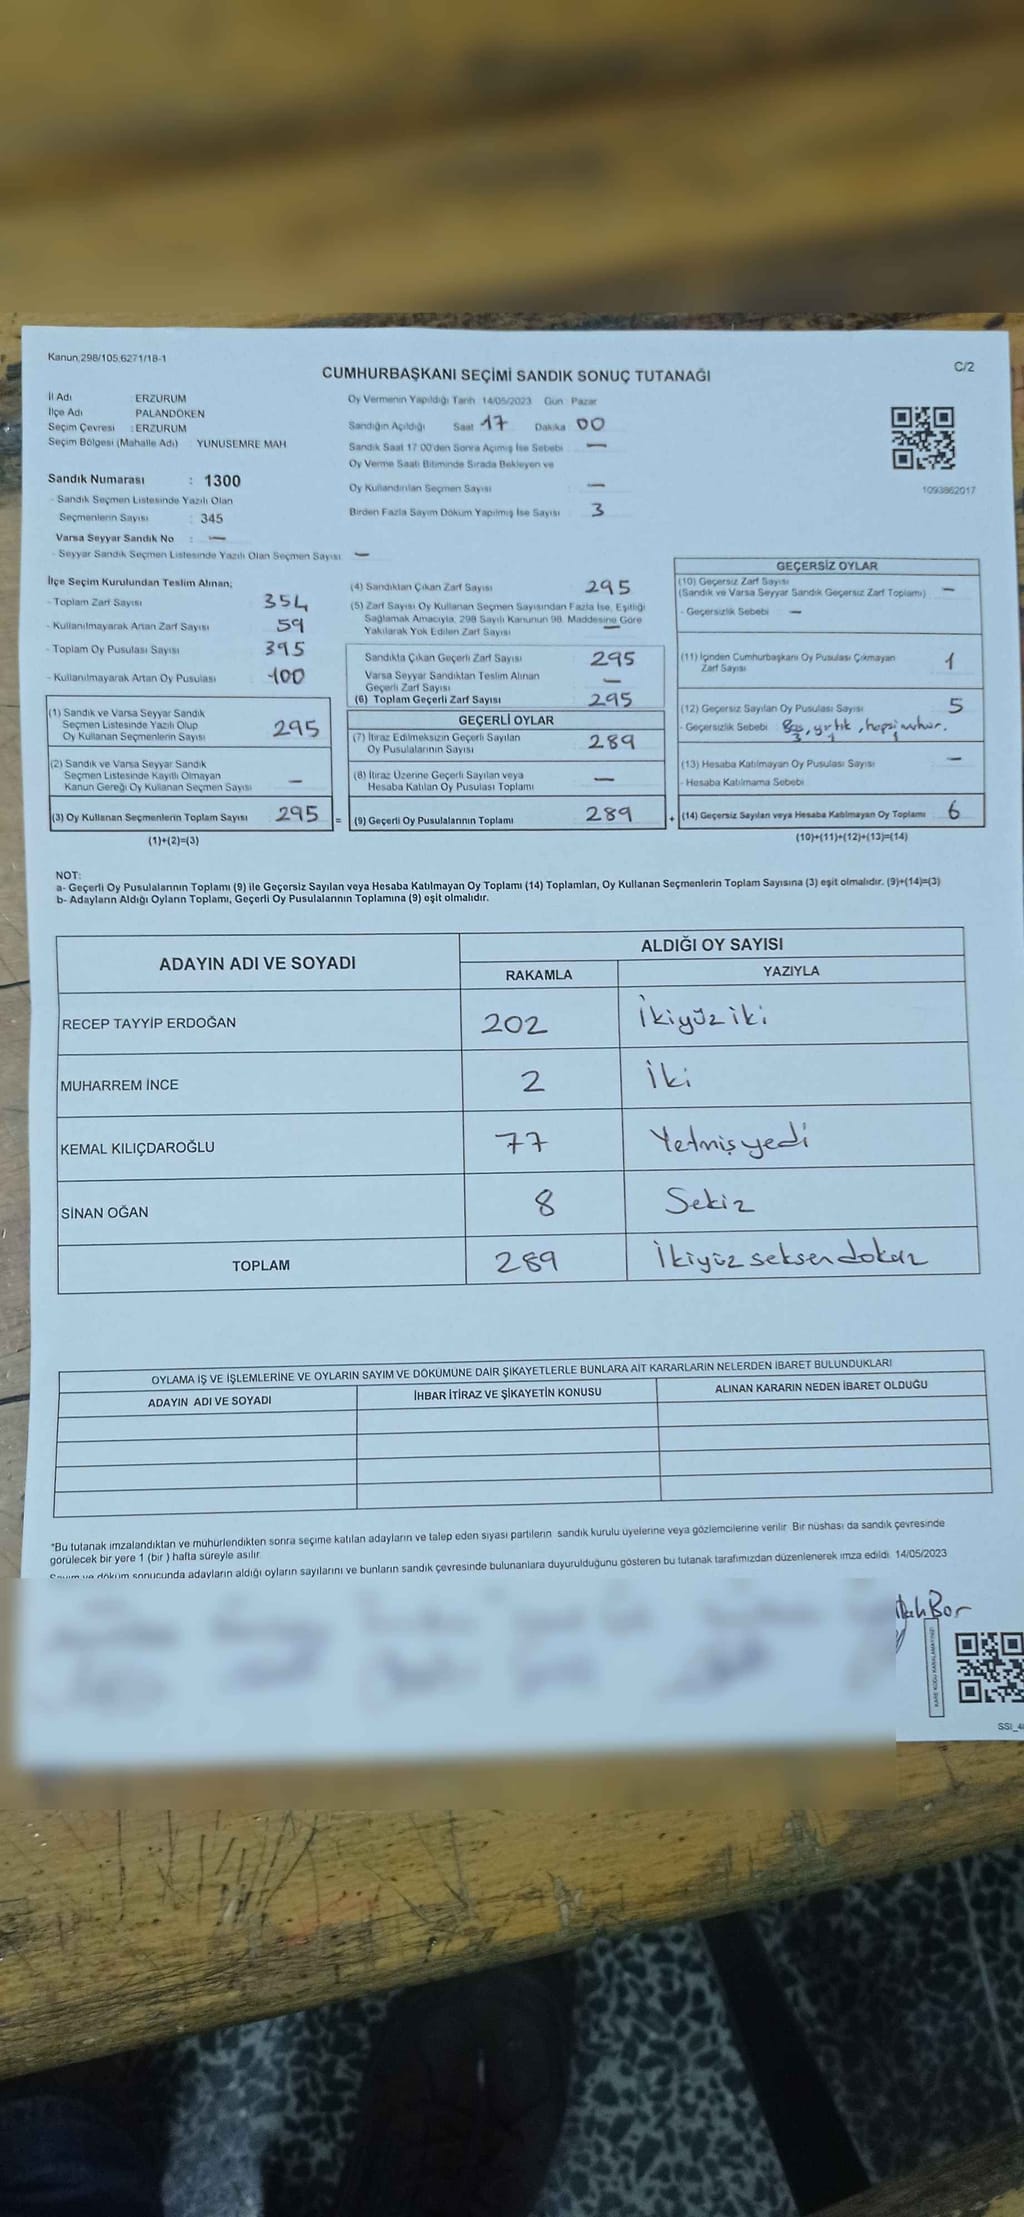 Kanun,298/105,6271/18-1
C/2
CUMHURBAŞKANI SEÇİMİ SANDIK SONUÇ TUTANAĞI
İl Adı : ERZURUM
İlçe Adı : PALANDÖKEN
Seçim Çevresi : ERZURUM
Seçim Bölgesi (Mahalle Adı) : YUNUSEMRE MAH
Sandık Numarası : 1300
- Sandık Seçmen Listesinde Yazılı Olan
Seçmenlerin Sayısı : 345
Varsa Seyyar Sandık No : —
- Seyyar Sandık Seçmen Listesinde Yazılı Olan Seçmen Sayısı : —
Oy Vermenin Yapıldığı Tarih 14/05/2023 Gün Pazar
Sandığın Açıldığı Saat 17 Dakika 00
Sandık Saat 17:00'den Sonra Açımış İse Sebebi —
Oy Verme Saati Bitiminde Sırada Bekleyen ve
Oy Kullandırılan Seçmen Sayısı —
Birden Fazla Sayım Döküm Yapılmış İse Sayısı 3
1093862017
İlçe Seçim Kurulundan Teslim Alınan;
- Toplam Zarf Sayısı 354
- Kullanılmayarak Artan Zarf Sayısı 59
- Toplam Oy Pusulası Sayısı 395
- Kullanılmayarak Artan Oy Pusulası 100
(1) Sandık ve Varsa Seyyar Sandık
Seçmen Listesinde Yazılı Olup
Oy Kullanan Seçmenlerin Sayısı 295
(2) Sandık ve Varsa Seyyar Sandık
Seçmen Listesinde Kayıtlı Olmayan
Kanun Gereği Oy Kullanan Seçmen Sayısı —
(3) Oy Kullanan Seçmenlerin Toplam Sayısı 295 =
(1)+(2)=(3)
(4) Sandıktan Çıkan Zarf Sayısı 295
(5) Zarf Sayısı Oy Kullanan Seçmen Sayısından Fazla İse, Eşitliği
Sağlamak Amacıyla, 298 Sayılı Kanunun 98. Maddesine Göre
Yakılarak Yok Edilen Zarf Sayısı —
Sandıkta Çıkan Geçerli Zarf Sayısı 295
Varsa Seyyar Sandıktan Teslim Alınan
Geçerli Zarf Sayısı —
(6) Toplam Geçerli Zarf Sayısı 295
GEÇERLİ OYLAR
(7) İtiraz Edilmeksizin Geçerli Sayılan
Oy Pusulalarının Sayısı 289
(8) İtiraz Üzerine Geçerli Sayılan veya
Hesaba Katılan Oy Pusulası Toplamı —
(9) Geçerli Oy Pusulalarının Toplamı 289 +
GEÇERSİZ OYLAR
(10) Geçersiz Zarf Sayısı
(Sandık ve Varsa Seyyar Sandık Geçersiz Zarf Toplamı) —
- Geçersizlik Sebebi —
(11) İçinden Cumhurbaşkanı Oy Pusulası Çıkmayan
Zarf Sayısı 1
(12) Geçersiz Sayılan Oy Pusulası Sayısı 5
- Geçersizlik Sebebi Boş, yırtık, hepsi mühür.
3 1 1
(13) Hesaba Katılmayan Oy Pusulası Sayısı —
- Hesaba Katılmama Sebebi
(14) Geçersiz Sayılan veya Hesaba Katılmayan Oy Toplamı 6
(10)+(11)+(12)+(13)=(14)
NOT:
a- Geçerli Oy Pusulalarının Toplamı (9) ile Geçersiz Sayılan veya Hesaba Katılmayan Oy Toplamı (14) Toplamları, Oy Kullanan Seçmenlerin Toplam Sayısına (3) eşit olmalıdır. (9)+(14)=(3)
b- Adayların Aldığı Oyların Toplamı, Geçerli Oy Pusulalarının Toplamına (9) eşit olmalıdır.
ADAYIN ADI VE SOYADI
ALDIĞI OY SAYISI
RAKAMLA YAZIYLA
RECEP TAYYİP ERDOĞAN 202 İkiyüz iki
MUHARREM İNCE 2 İki
KEMAL KILIÇDAROĞLU 77 Yetmişyedi
SİNAN OĞAN 8 Sekiz
TOPLAM 289 İkiyüz seksen dokuz
OYLAMA İŞ VE İŞLEMLERİNE VE OYLARIN SAYIM VE DÖKÜMÜNE DAİR ŞİKAYETLERLE BUNLARA AİT KARARLARIN NELERDEN İBARET BULUNDUKLARI
ADAYIN ADI VE SOYADI İHBAR İTİRAZ VE ŞİKAYETİN KONUSU ALINAN KARARIN NEDEN İBARET OLDUĞU
*Bu tutanak imzalandıktan ve mühürlendikten sonra seçime katılan adayların ve talep eden siyasi partilerin sandık kurulu üyelerine veya gözlemcilerine verilir. Bir nüshası da sandık çevresinde
görülecek bir yere 1 (bir ) hafta süreyle asılır.
Sayım ve döküm sonucunda adayların aldığı oyların sayılarını ve bunların sandık çevresinde bulunanlara duyurulduğunu gösteren bu tutanak tarafımızdan düzenlenerek imza edildi. 14/05/2023
Bor
KARE KODU KARALAMAYINIZ!